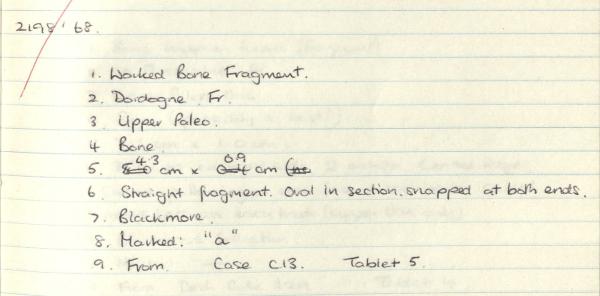 2198'68.
1. Worked Bone Fragment.
2. Dordogne. Fr.
3. Upper Paleo.
4 Bone
5. 4.3 cm x 0.9 cm
6. Straight fragment. Oval in section. snapped at both ends.
7. Blackmore.
8. Marked: "a"
9. From. Case C13. Tablet 5.